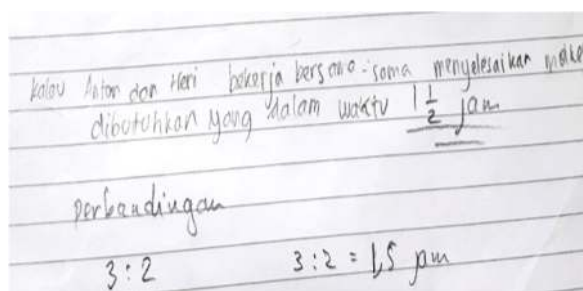 kalau Anton dan Heri bekerja bersama-sama menyelesaikan
dibutuhkan yang dalam waktu 1 1/2 jam
perbandingan
3 : 2 3 : 2 = 1,5 jam